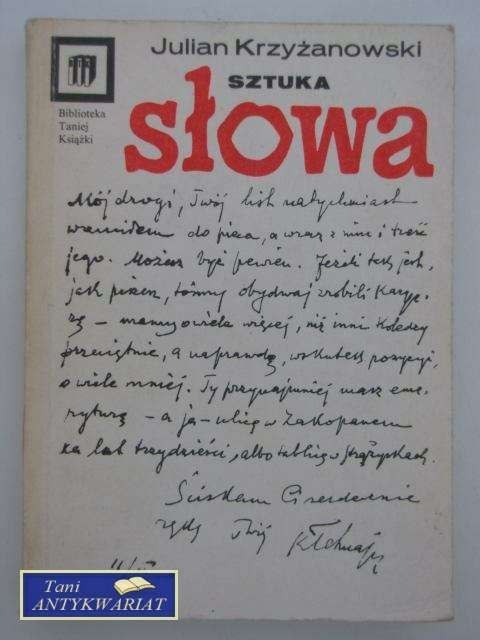 Julian Krzyżanowski
SZTUKA
słowa
Biblioteka
Taniej
Książki
Mój drogi, Twój list natychmiast
do pieca, a wraz z nim i treść
jego. Możesz być pewien. Jeżeli tak jest,
jak piszesz, tośmy obydwaj zrobili karje-
rę – mamy o wiele więcej, niż inni koledzy
przeciętnie, a naprawdę, wskutek pozycji,
o wiele mniej. Ty przynajmniej masz eme-
ryturę – a ja – ulicę w Zakopanem
za lat trzydzieści, albo tablicę w Strążyskach.
Ściskam Cię serdecznie
Twój
Tani
ANTYKWARIAT